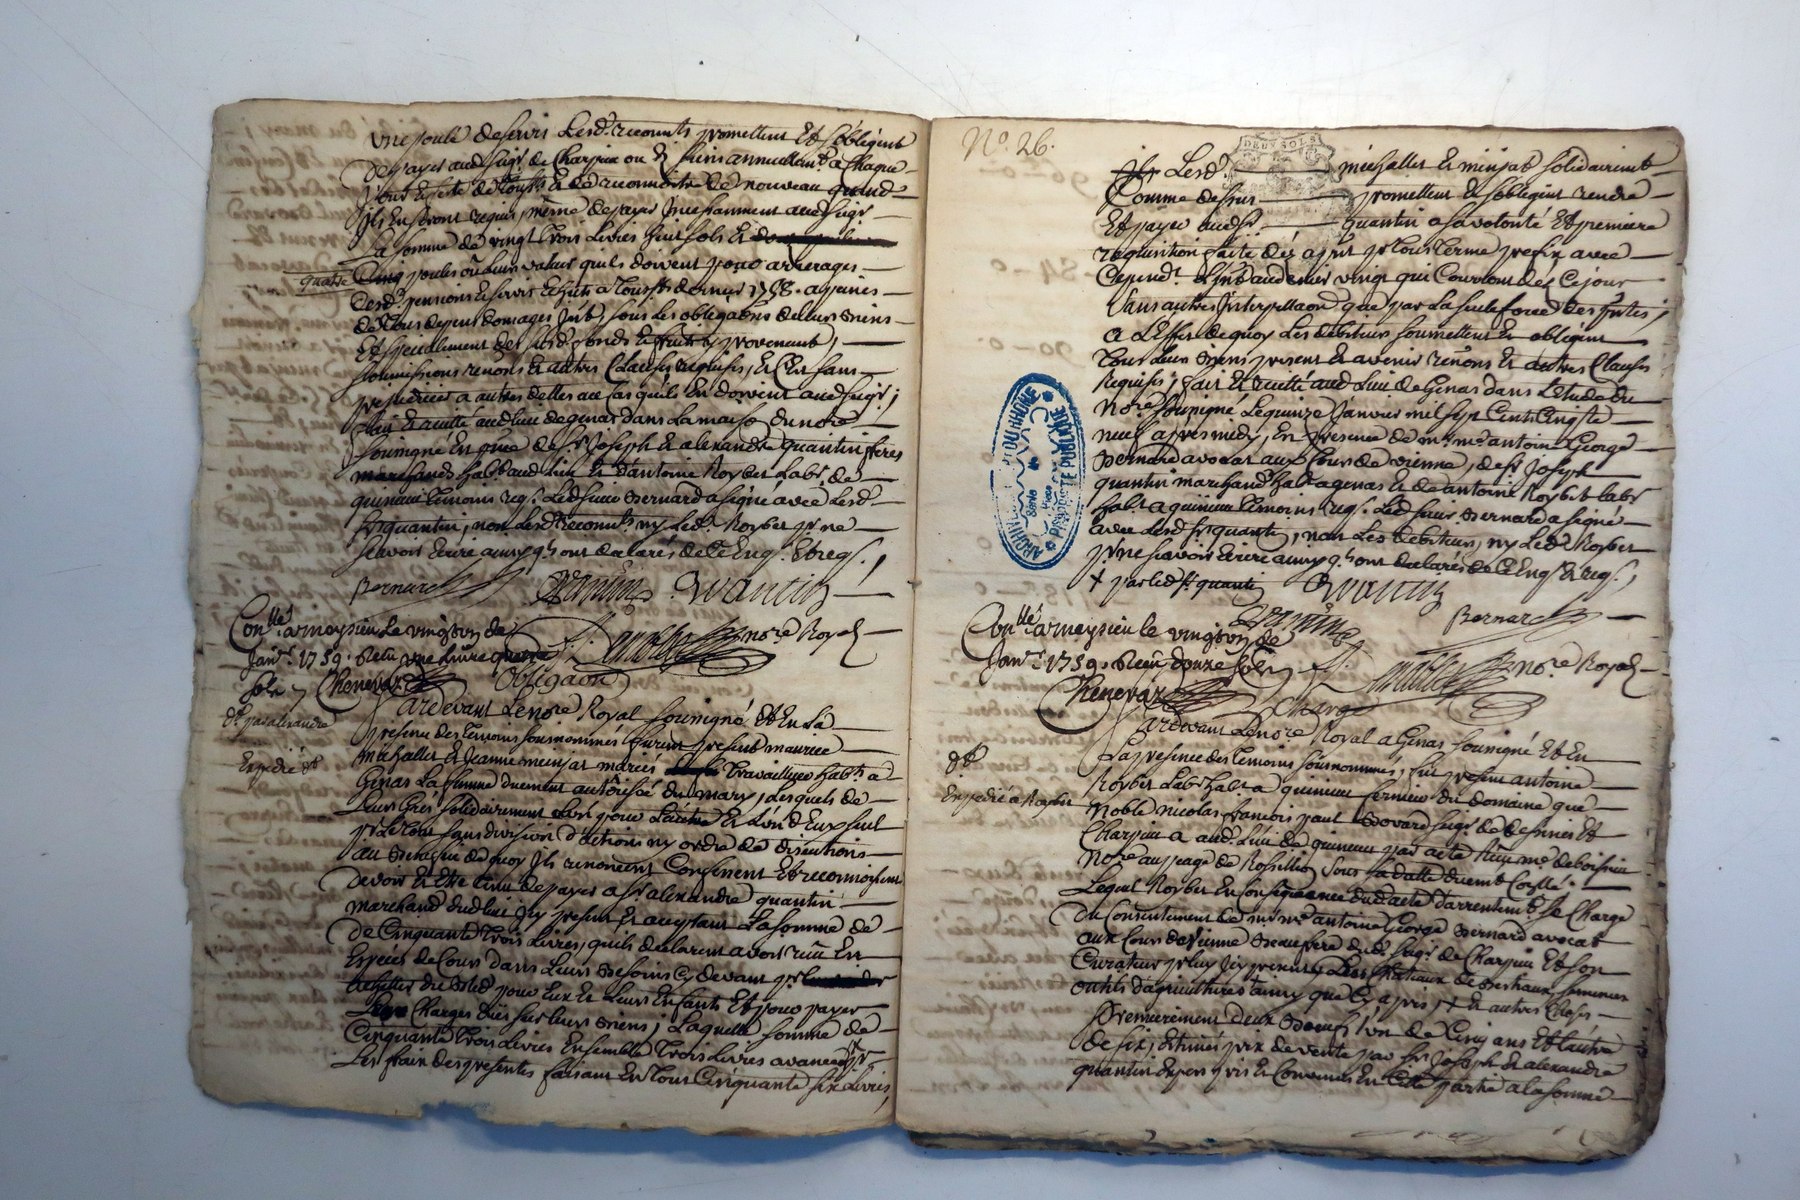 une poule de servis Lesd. reconnts promettent Et s'obligent
De payer aud seigr de Charpieu ou Es siens annuellemt a Chaque
jour Et fete de Toussts Et de reconnoitre de nouveau quand
Ils En seront requis, même de payer Incessamment aud seigr
La somme de vingt trois Livres huit sols Et
quatre Cinq poules ou Leur valeur quils doivent pour arrerages
Desd. pensions Et servis Echus a Toussts dernier 1758. a peines
de Tous depens domages Intts sous Les obligaons de Leurs Biens
Et specialement desd. fonds Et fruits y provenants,
soumissions renons Et autres Clauses requises, Et C'est sans
prejudicier a autres delles au Cas quils En doivent aud seigr;
fait Et recitté aud Lieu de genas dans La maison du nore
soussigné En pnce de sr Joseph Et alexandre quantin freres
marchands habts aud Lieu Et d'antoine Roybet Labr de
quinieu temoins reqs. Led sieur Bernard a signé avec Lesd
srs quantin, non Lesd reconnts ny Led. Roybet pr ne
scavoir Ecrire ainsy qls ont declarés de Ce Enqs. Et reqs.
Bernard quantin quantin
nore Royal
Conllé a meysieu Le vingt de
Janvr 1759. Recu une Livre quatre
sols Chenevaz
Obligaon
Pardevant Le nore Royal soussigné Et En La
d. pr alexandre
presence des temoins sousnommés furent present maurice
Expedié
michallet Et Jeanne meinsat mariés travailleur habts a
Genas La femme duement authorisée du mary, Lesquels de
Leurs Grés solidairement L'un pour L'autre Et L'un d'Eux seul
pr Le tout sans division d'actions ny ordre de discutions
au Benefice de quoy Ils renoncent Confessent Et reconnoissent
devoir Et Etre tenus de payer a sr alexandre quantin
marchand dud lieu Icy present Et acceptant La somme de
De Cinquante trois Livres, quils declarent avoir recu En
Espéces de Cours dans Leurs Besoins Cy devant pr
achetter du Bled pour Eux Et Leurs Enfants Et pour payer
Les Charges dues sur Leurs Biens; Laquelle somme de
Cinquante trois Livres Ensemble trois Livres avancées pr
Les frais des presentes faisant En tout Cinquante six Livres,
No. 26.
DEUX SOLS
Lesd michallet Et minsat solidairement
Comme dessus promettent Et s'obligent rendre
Et payer aud sr quantin a sa volonté Et premiere
requisition faite dés apresent pr tout terme prefix avec
Cepend. L'Intt au denier vingt qui Courront dés Ce jour
sans autres Interpellaon que par La seule force des pntes;
a L'Effet de quoy Les debiteurs soumettent Et obligent
tous Leurs Biens present Et avenir renons Et autres Clauses
Requises; fait Et recitté aud Lieu de Genas dans L'Etude du
nore soussigné Le quinze Janvier mil sept Cents Cinqte
neuf apres midy, En presence de mr me antoine George
Bernard avocat aux Cours de vienne, de sr Joseph
quantin marchand habt a genas Et de antoine Roybet labr
habt a quinieu temoins reqs. Led sieur Bernard a signé
avec Lesd srs quantin, non Les debiteurs, ny Led Roybet
pr ne scavoir Ecrire ainsy qls ont declarés de Ce Enqs Et reqs.
+ par led sr quantin
quantin
quantin
Bernard
ARCHIVES DU RHONE
PROPRIÉTÉ PUBLIQUE
nore Royal
Conllé a meysieu le vingt de
Janvr 1759. Recu douze sols
Chenevaz
Charge
Pardevant Le nore Royal a Genas soussigné Et En
La presence des temoins sousnommés, fut present antoine
d.
Expedié a Roybet
Roybet Labr habt a quinieu fermier du domaine que
noble nicolas francois paul Bovard seigr de
Charpieu a aud. Lieu de quinieu par acte Recu me deboissieu
nore au peage de Rossillon sous sa datte duemt Conllé.
Lequel Roybet En Consequence dud acte d'arrentemt se Charge
du Consentement de mr me antoine George Bernard avocat
aux Cours de vienne Beaufrere dud. seigr de Charpieu Et son
Curateur pr luy Icy present, Des Bestiaux semences
outils d'agricultures ainsy que Cy apres + Et autres Choses
Premierement deux Boeufs L'un de Cinq ans Et L'autre
de six, Estimés prix de vente par srs Joseph Et alexandre
quantin Expers pris Et Convenus En Cette partie a la somme